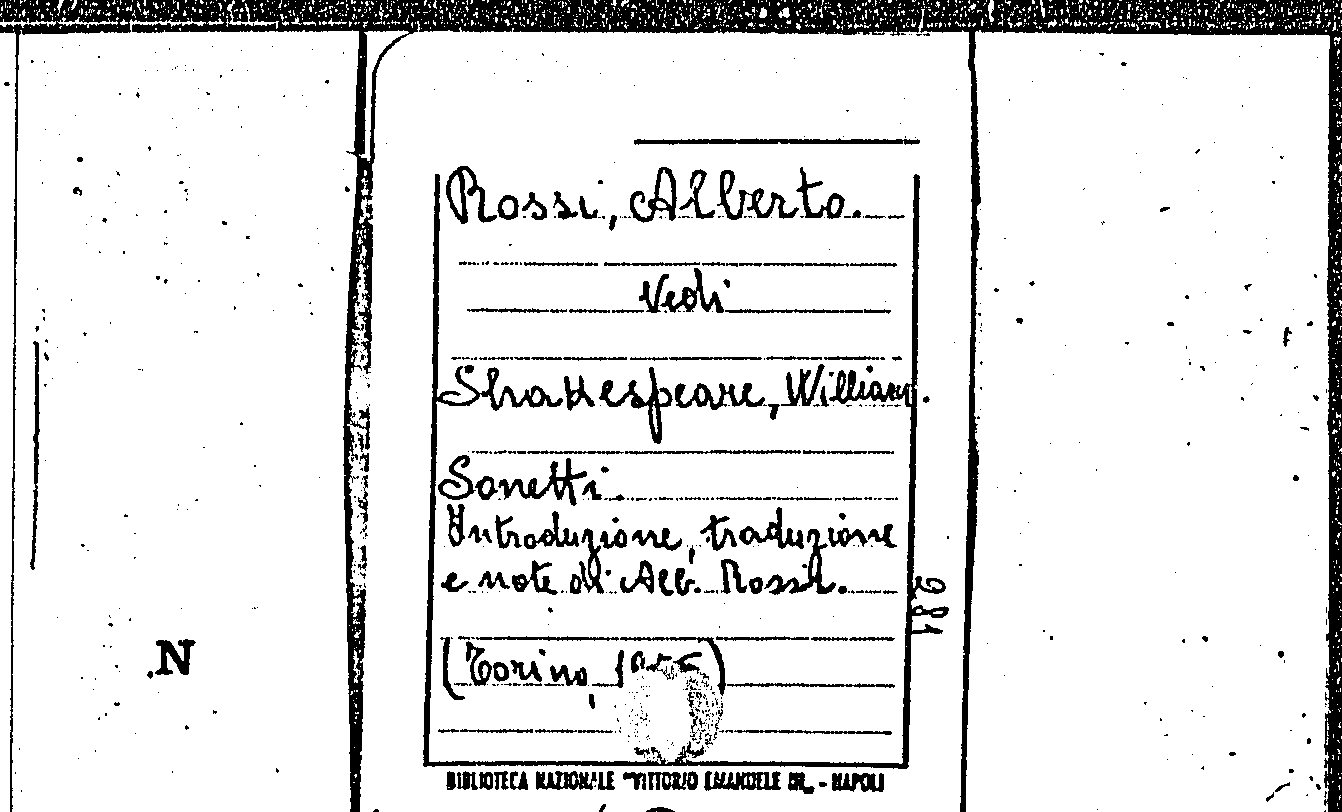 Rossi, Alberto.
Vedi
Shakespeare, William.
Sonetti.
Introduzione, traduzione
e note di Alb. Rossi.
(Torino,
281
N
BIBLIOTECA NAZIONALE "VITTORIO EMANUELE III" - NAPOLI